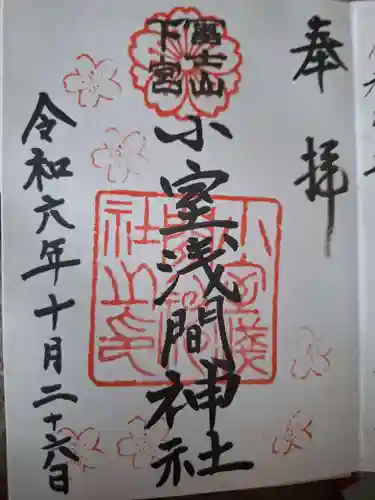 奉拝
富士山
下宮
小室浅間神社
小室浅間神社之印
令和六年十月二十六日